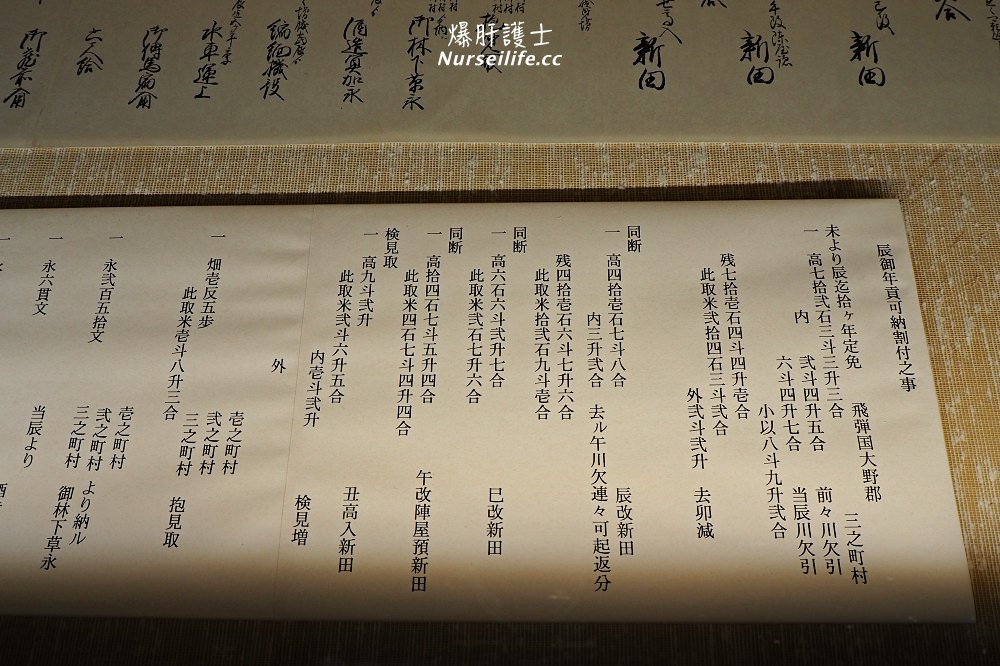 爆肝護士
Nurseilife.cc
新田
新田
新田
御林下草永
酒造冥加永
水車運上
辰御年貢可納割付之事
飛弾国大野郡 三之町村
未より辰迄拾ヶ年定免
一 高七拾弐石三斗三升三合
内 弐斗四升五合 前々川欠引
六斗四升七合 当辰川欠引
小以八斗九升弐合
残七拾壱石四斗四升壱合
此取米弐拾四石三斗弐合
外弐斗弐升 去卯減
同断
一 高四拾壱石七斗八合 辰改新田
内三升弐合 去ル午川欠連々可起返分
残四拾壱石六斗七升六合
此取米拾弐石九斗壱合
同断
一 高六石六斗弐升七合 巳改新田
此取米弐石七升六合
同断
一 高拾四石七斗五升四合 午改陣屋預新田
此取米四石七斗四升四合
検見取
一 高九斗弐升 丑高入新田
此取米弐斗六升五合
内壱斗弐升 検見増
外
一 畑壱反五歩 壱之町村 弐之町村 三之町村 抱見取
此取米壱斗八升三合
一 永弐百五拾文 壱之町村 弐之町村 三之町村 より納ル 御林下草永
一 永六貫文 当辰より
一